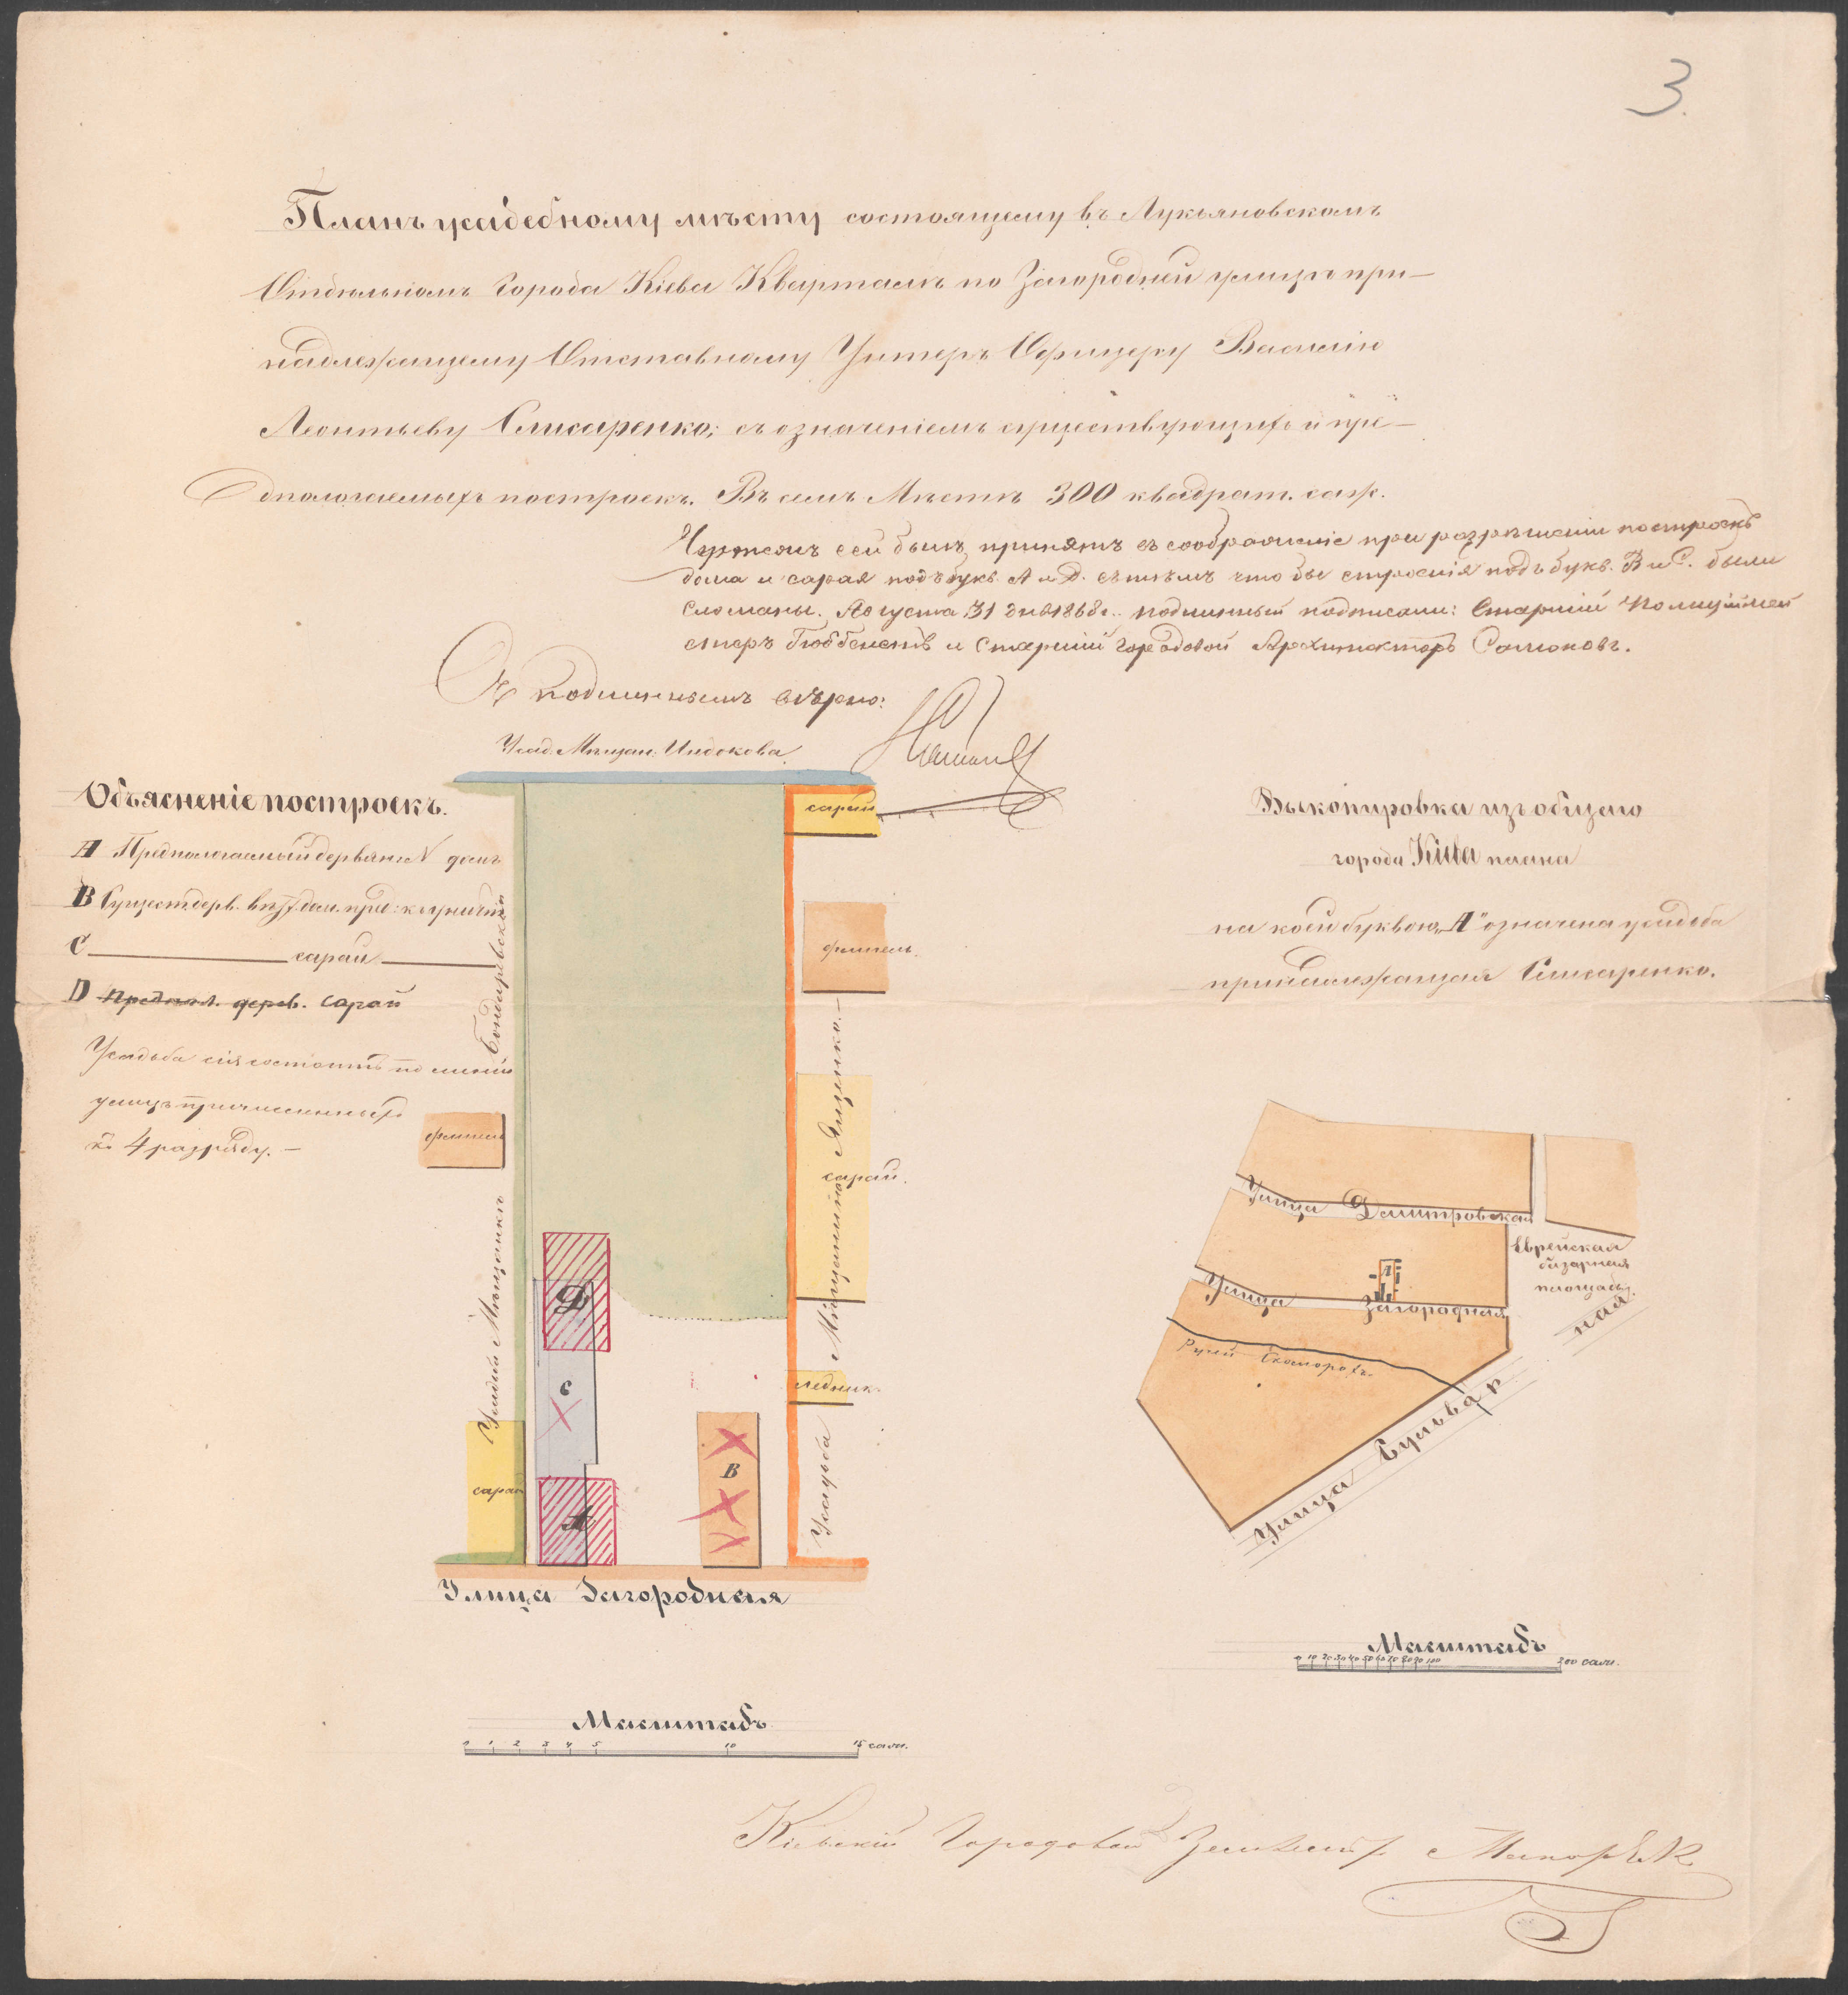 3.
Планъ усадебному мѣсту состоящему въ Лукьяновскомъ
Отдѣльномъ Города Кіева Кварталѣ по Загородней улицѣ при-
надлежащему Отставному Унтеръ Офицеру Василію
Леонтьеву Слисаренко; съ означеніемъ существующихъ и пре-
дполагаемыхъ построекъ. Въ семъ Мѣстѣ 300 квадрат. саж.
Чертежъ сей былъ принятъ въ соображеніе при разрѣшеніи построекъ
дома и сарая подъ букв. А и D. съ тѣмъ что бы строенія подъ букв. В и С. были
сломаны. Августа 31 дня 1868 г. подлинный подписали: Старшій Полицiймей
стеръ и Старшій Городовой Архитекторъ
Съ подлиннымъ вѣрно:
Усад. Мѣщан. Индокова
Объясненіе построекъ.
А Предполагаемый деревян. домъ
В Существ. дерев. дом. пред: къ
С сарай
D Предпол. дерев. сарай
Усадьба сія состоитъ по линіи
улицъ причисленныхъ
къ 4 разряду. —
Усадьба Мѣщанки Бондаревской
флигель
сарай
сарай
флигель.
сарай.
ледникъ.
Усадьба Мѣщанина Ященко. —
D
С
А
В
Улица Загородная
Масштабъ
0 1 2 3 4 5 10 15 саж.
Выкопировка изъ общаго
города Кіева плана
на коей буквою „А" означена усадьба
принадлежащая Слисаренко.
Улица Дмитровская
Еврейская
базарная
площадь.
А
Улица Загородная
Ручей Скоморохъ.
Улица Бульварная
Масштабъ
0 10 20 30 40 50 60 70 80 90 100 200 саж.
Кіевскій Городовой Землемѣръ